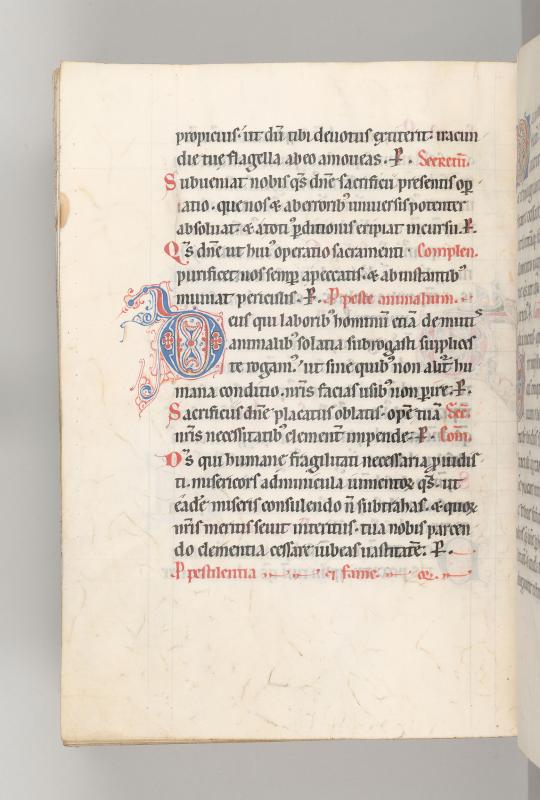 propicius. ut dū tibi deuotus extiterit: iracun
die tue flagella ab eo amoueas. P. Secretū.
Subueniat nobis qs dne sacrificii presentis opr
atio. que nos & ab erroribꝰ uniuersis potenter
absoluat. & a toti pditionis eripiat incursu. P.
Qs dne ut huiꝰ operatio sacramenti Complen.
purificet nos semp a peccatis. & ab instantibꝰ
muniat periculis. P. P peste animalium.
Deus qui laboribꝰ hominū etiā de mutis
animalibꝰ solatia subrogasti supplices
te rogamꝰ. ut sine quibꝰ non alit hu
mana conditio. nris facias usibꝰ non pire. P.
Sacrificiis dne placatus oblatis. opē tuā Secr.
nris necessitatibꝰ clement impende. P. Com.
Ds qui humane fragilitati necessaria puidis
ti. misericors adminicula iumentoꝝ qs. ut
eadē miseris consulendo ñ subtrahas. & quoꝝ
nris meritis seuit interitus. tua nobis parcen
do clementia cessare iubeas uastitatē. P.
P pestilentia et fame.